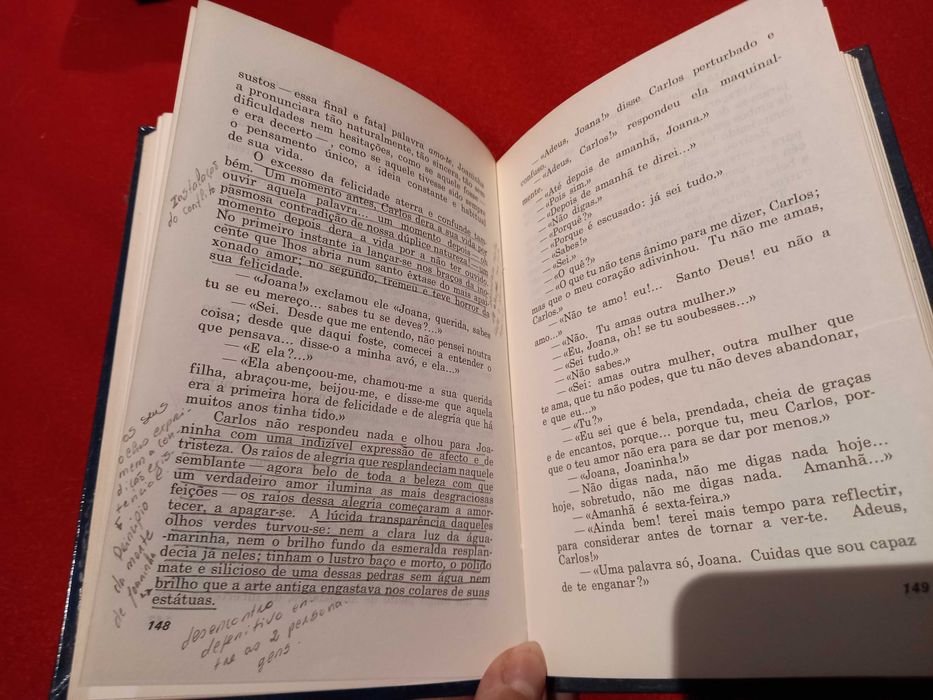 sustos — essa final e fatal palavra amo-te, Joaninha
a pronunciara tão naturalmente, tão sincera tão sem
dificuldades nem hesitações, como se aquele fosse —
e era decerto —, como se aquele tivesse sido sempre
o pensamento único, a ideia constante e habitual
de sua vida.
O excesso da felicidade aterra e confunde tam-
bém. Um momento antes, Carlos dera a sua vida por
ouvir aquela palavra... um momento depois — ó
pasmosa contradição de nossa dúplice natureza! — um
momento depois dera a vida por a não ter ouvido.
No primeiro instante ia lançar-se nos braços da ino-
cente que lhos abria num santo êxtase do mais apai-
xonado amor; no segundo, tremeu e teve horror da
sua felicidade.
— «Joana!» exclamou ele «Joana, querida, sabes
tu se eu mereço... sabes tu se deves?...»
— «Sei. Desde que me entendo, não pensei noutra
coisa; desde que daqui foste, comecei a entender o
que pensava... disse-o a minha avó, e ela...»
— «E ela?...»
— «Ela abençoou-me, chamou-me a sua querida
filha, abraçou-me, beijou-me, e disse-me que aquela
era a primeira hora de felicidade e de alegria que há
muitos anos tinha tido.»
Carlos não respondeu nada e olhou para Joa-
ninha com uma indizível expressão de afecto e de
tristeza. Os raios de alegria que resplandeciam naquele
semblante — agora belo de toda a beleza com que
um verdadeiro amor ilumina as mais desgraciosas
feições — os raios dessa alegria começaram a amor-
tecer, a apagar-se. A lúcida transparência daqueles
olhos verdes turvou-se: nem a clara luz da água-
-marinha, nem o brilho fundo da esmeralda resplan-
decia já neles; tinham o lustro baço e morto, o polido
mate e silicioso de uma dessas pedras sem água nem
brilho que a arte antiga engastava nos colares de suas
estátuas.
148
do conflito
os seus
olhos expri-
mem a con-
Princípio
da morte
de Joaninha
desencontro
definitivo en-
tre as 2 persona-
gens.
— «Adeus, Joana!» disse Carlos perturbado e
confuso.
— «Adeus, Carlos!» respondeu ela maquinal-
mente.
— «Até depois de amanhã, Joana.»
— «Pois sim.»
— «Depois de amanhã te direi...»
— «Não digas.»
— «Porquê?»
— «Porque é escusado: já sei tudo.»
— «Sabes!»
— «Sei.»
— «O quê?»
— «O que tu não tens ânimo para me dizer, Carlos;
mas que o meu coração adivinhou. Tu não me amas,
Carlos.»
— «Não te amo! eu!... Santo Deus! eu não a
amo...»
— «Não. Tu amas outra mulher.»
— «Eu, Joana, oh! se tu soubesses...»
— «Sei tudo.»
— «Não sabes.»
— «Sei: amas outra mulher, outra mulher que
te ama, que tu não podes, que tu não deves abandonar,
e que eu...»
— «Tu?»
— «Eu sei que é bela, prendada, cheia de graças
e de encantos, porque... porque tu, meu Carlos, por-
que o teu amor não era para se dar por menos.»
— «Joana, Joaninha!»
— Não digas nada, não me digas nada hoje...
hoje, sobretudo, não me digas nada. Amanhã...»
— «Amanhã é sexta-feira.»
— «Ainda bem! terei mais tempo para reflectir,
para considerar antes de tornar a ver-te. Adeus,
Carlos!»
— «Uma palavra só, Joana. Cuidas que sou capaz
de te enganar?»
149